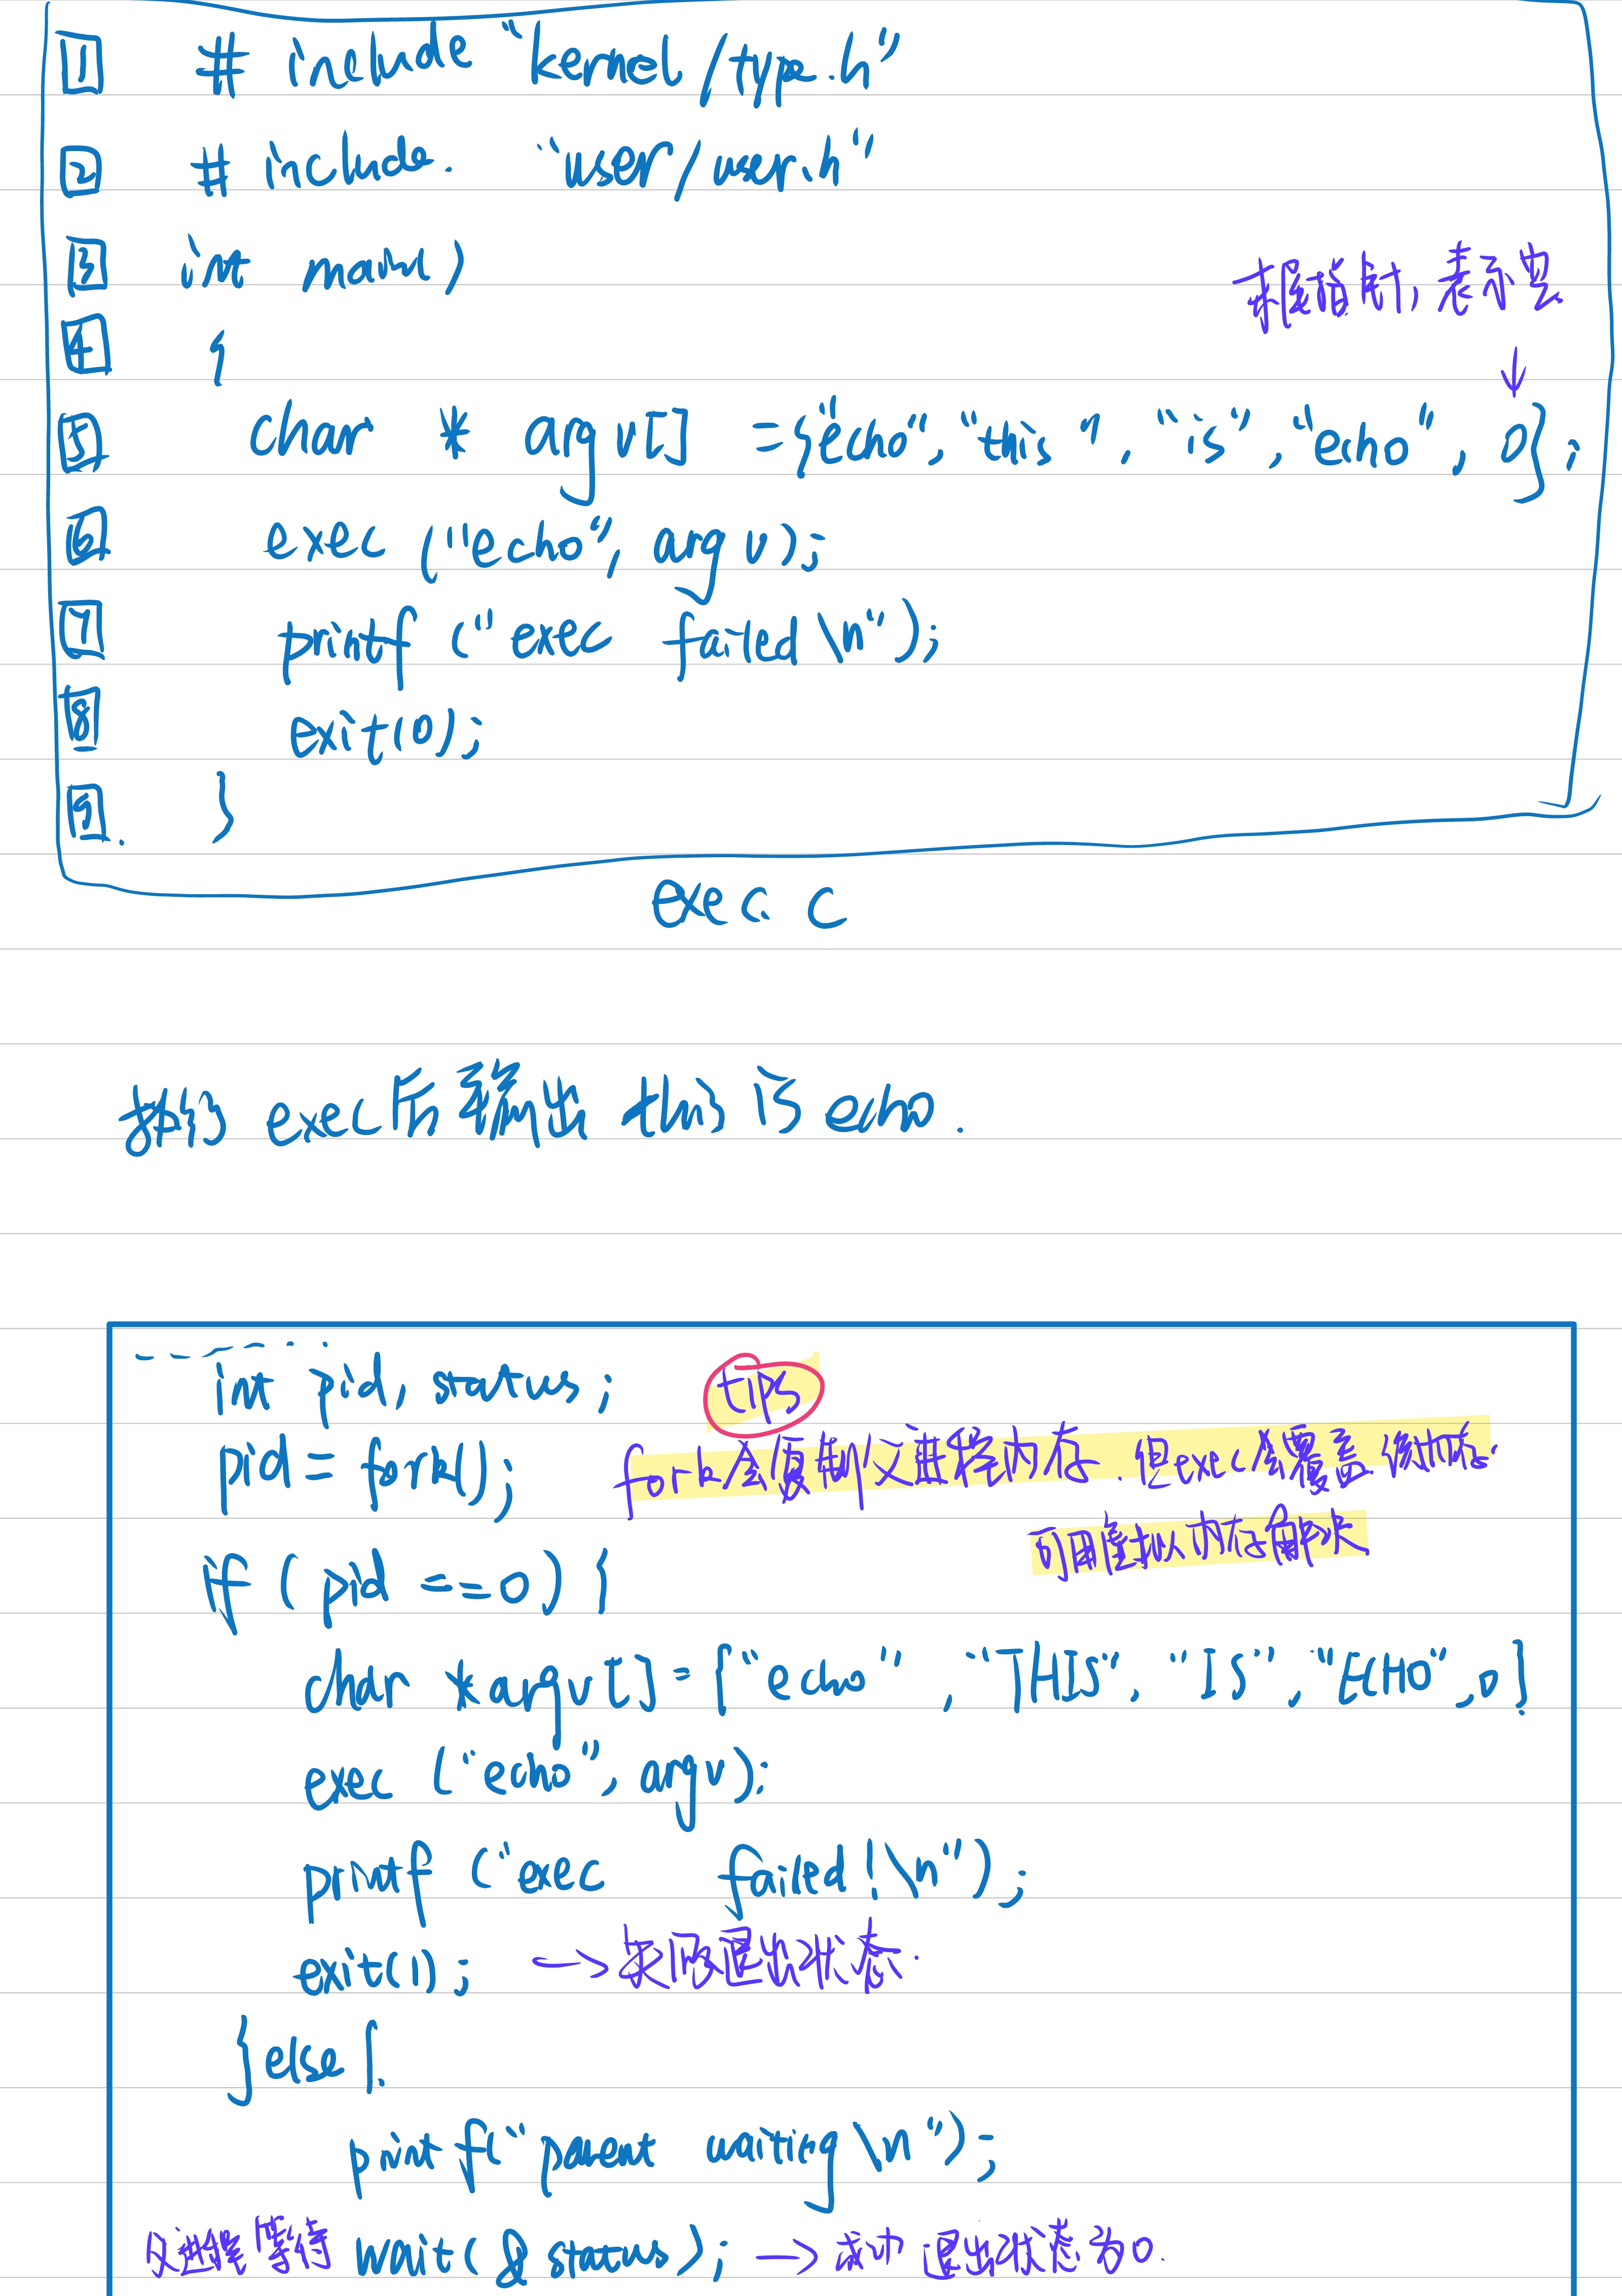 1 # include "kernel/type.h"
2 # include. "user/user.h"
3 int main()
尾指针,表示空
↓
4 {
5 char * argv[] ={"echo","this","is","echo", 0};
6 exec ("echo", argv);
7 printf ("exec failed \n");
8 exit(0);
9. }
exec. c
执行 exec后 输出 this is echo.
int pid, status;
tips
pid = fork();
fork会复制父进程内存.但exec会覆盖.该内存.
可用虚拟内存解决
if ( pid ==0) {
char *argv[]={"echo", "THIS", "IS", "ECHO", 0};
exec ("echo", argv);
printf ("exec failed!\n");
exit(1); → 失败退出状态.
}else{.
printf("parent waiting \n");
父进程等待 wait( & status); → 成功 退出状态为0.